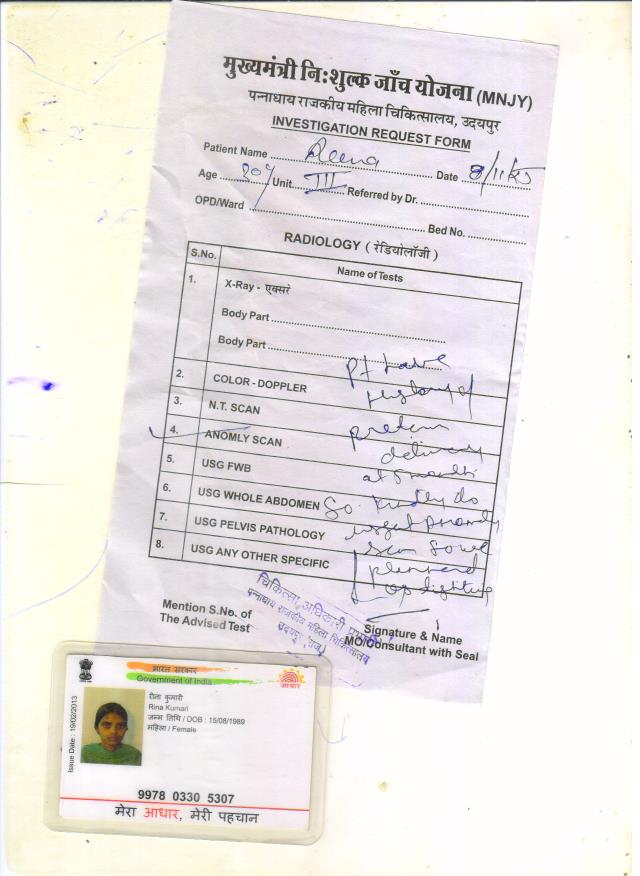 मुख्यमंत्री निःशुल्क जाँच योजना (MNJY)
पन्नाधाय राजकीय महिला चिकित्सालय, उदयपुर
INVESTIGATION REQUEST FORM
Patient Name Reena Date 8/11/25
Age 20y Unit III Referred by Dr.
OPD/Ward Bed No.
RADIOLOGY ( रेडियोलॉजी )
S.No. Name of Tests
1. X-Ray - एक्सरे
Body Part
Body Part
Pt have
2. COLOR - DOPPLER history of
3. N.T. SCAN preterm
4. ANOMLY SCAN delivery
5. USG FWB at 5 month
6. USG WHOLE ABDOMEN So kindly do
7. USG PELVIS PATHOLOGY urgent anomaly
scan so we
8. USG ANY OTHER SPECIFIC planned
चिकित्सा अधिकारी
पन्नाधाय राजकीय महिला चिकित्सालय
उदयपुर (राज.)
Mention S.No. of
The Advised Test
Signature & Name
MO/Consultant with Seal
भारत सरकार
Government of India
आधार
Issue Date : 19/02/2013
रीना कुमारी
Rina Kumari
जन्म तिथि / DOB : 15/08/1989
महिला / Female
9978 0330 5307
मेरा आधार, मेरी पहचान